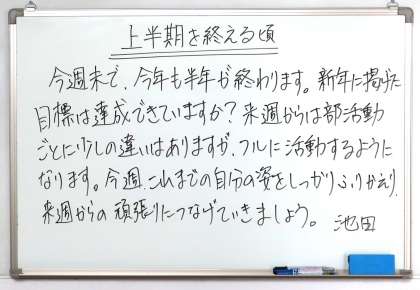 上半期を終える頃
今週末で、今年も半年が終わります。新年に掲げた
目標は達成できていますか？来週からは部活動
ごとに少しの違いはありますが、フルに活動するように
なります。今週、これまでの自分の姿をしっかりふりかえり、
来週からの頑張りにつなげていきましょう。
池田